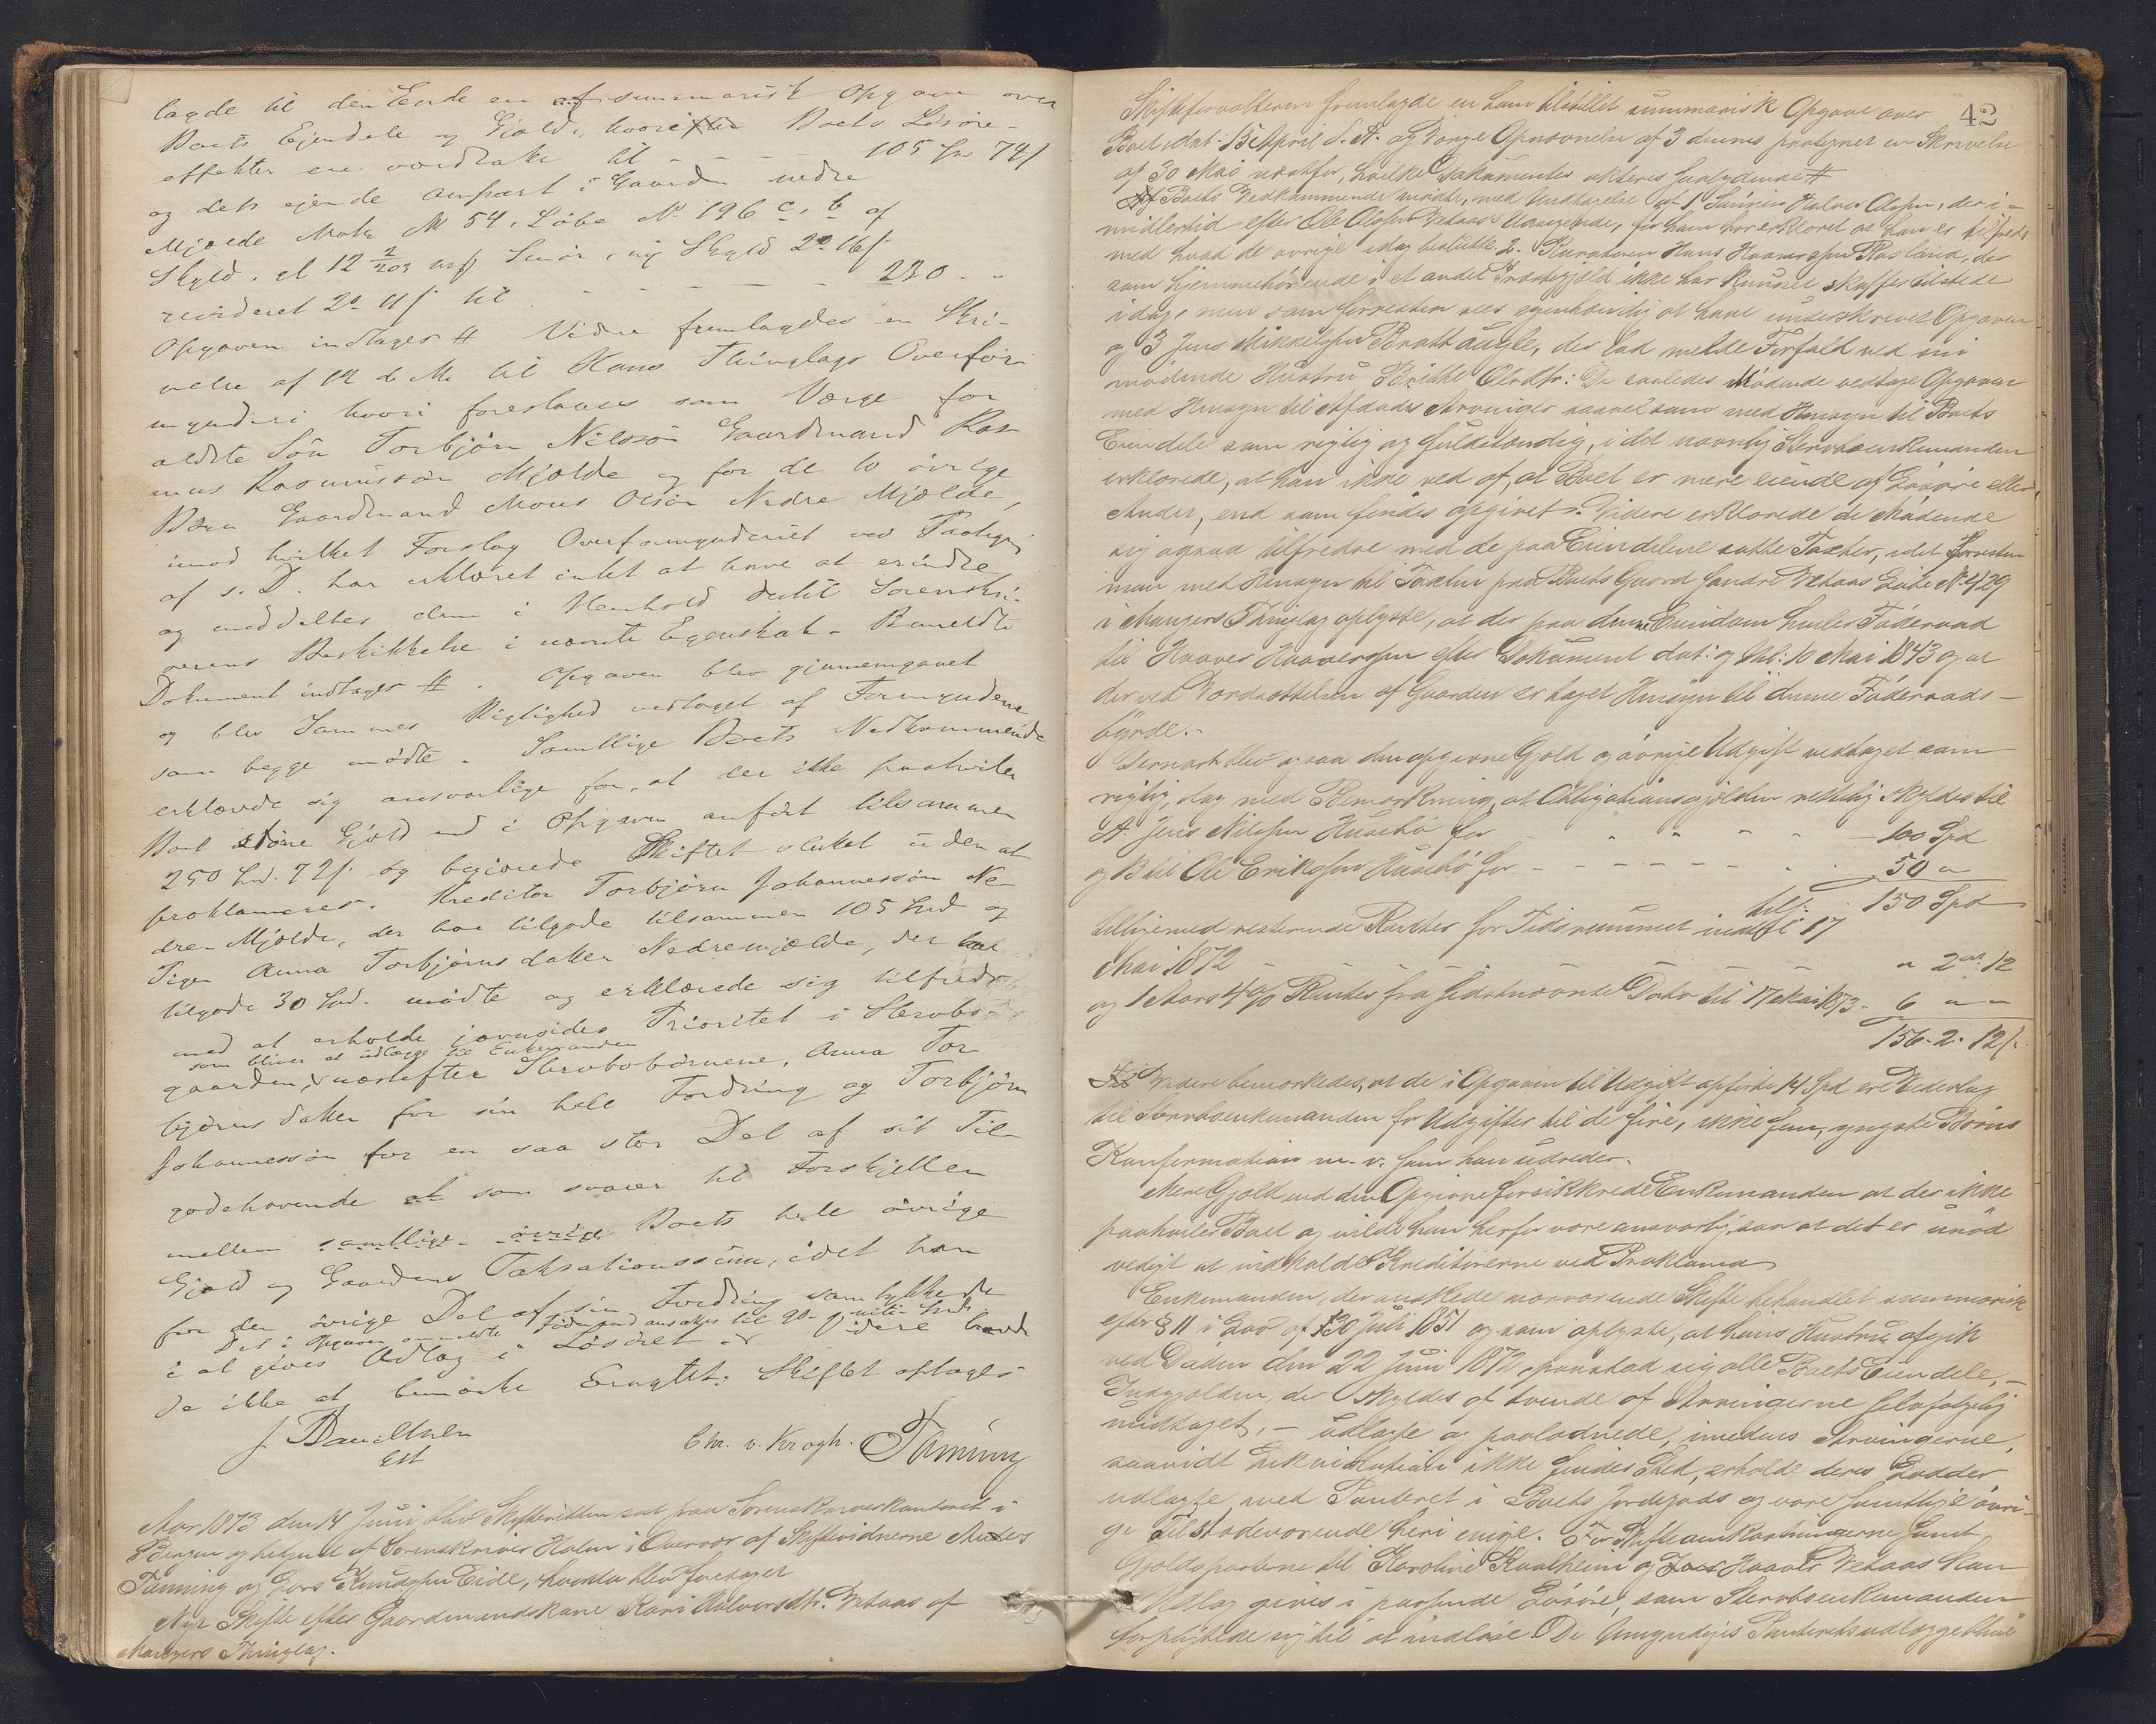 lagde til den Ende en summarisk Opgave over
Boets Ejendele og Gjæld, hvori Boets Løsøre-
effekter ere værdsatte til - - - 105 Spd 74 s
og dets ejende Anpart i Gaarden nedre
Mjelde Matr № 54, Løbe № 196 c, b af
Skyld, gl 12 Smør, ny Skyld 2 ort 16 s
revideret 2 - 11 s til - - - - - 230 - -
Opgaven indtages #. Videre fremlagdes en Skri-
velse af 12 d. M. til Hans Thinglags Overfor-
mynderi hvori foreslaaes som Værge for
ældste Søn Torbjørn Nilssøn Gaardmand Ras-
mus Rasmussøn Mjelde og for de to øvrige
Børn Gaardmand Mons Olsøn Nedre Mjelde,
imod hvilket Forslag Overformynderiet ved Paategn.
af s. D. har erklæret intet at have at erindre
og meddeltes dem i Henhold dertil Sorenskri-
verens Beskikkelse i nævnte Egenskab. Bemeldte
Dokument indtages #. Opgaven blev gjennemgaaet
og blev Sammes Rigtighed vedtaget af Formynderne
som begge mødte. Samtlige Boets Vedkommende
erklærede sig ansvarlige for, at der ikke paahviler
Boet større Gjæld end i Opgaven anført tilsammen
250 Spd. 72 s. og begjærede Skiftet sluttet uden at
proklameres. Kreditor Torbjørn Johannessøn Ne-
dre-Mjelde, der har tilgode tilsammen 105 Spd og
Pigen Anna Torbjørnsdatter Nedremjelde, der har
tilgode 30 Spd. mødte og erklærede sig tilfreds
med at erholde jevnsides Prioritet i Stervbo-
som bliver at udlægge til Enkemanden
gaarden, næstefter Stervbobørnene, Anna Tor-
bjørnsdatter for sin hele Fordring og Torbjørn
Johannessøn for en saa stor Del af sit Til-
godehavende som svarer til Forskjellen
mellem samtlige øvrige Boets hele øvrige
Gjæld og Gaardens Taxationssum, idet han
for den øvrige Del af sin Fordring samtykkede
Det i Opgaven anmeldte Føderaad ansattes til 20
i at gives Udlag i Løsøret. Videre havde
de ikke at bemærke. Eragtet: Skiftet optages
Chr. v. Krogh. Tanning
Aar 1873 den 14 Juni blev Skifteretten sat paa Sorenskriverkontoret i
Bergen og betjent af Sorenskriver Holm i Overvær af Skiftevidnerne Anders
Tanning og Lars Knudssen Eide, hvorda blev foretaget
Nyt Skifte efter Gaardmandskone Kari Halvorsdtr. Vetaas af
Mangers Thinglag.
42
Skifteforvalteren fremlagde en ham tilstillet summarisk Opgave over
Boet dat: 15 April d. A. og Værge Opnævnelse af 3 dennes paategnet en Skrivelse
af 30 Mai næstfør, hvilke Dokumenter akteres saalydende #
Af Boets Vedkommende mødte, med Undtagelse af 1 Sønnen Halvor Olsen, der i-
midlertid efter Ole Olsen Vetaas's Udsigende, for ham har erklæret at han er tilfreds
med hvad de øvrige idag beslutte. 2. Kuratoren Hans Haaversen Risland, der
som hjemmehørende i et andet Præstegjeld ikke har kunnet skaffes tilstede
idag, men som forresten sees egenhændig at have underskrevet Opgaven
og 3 Jens Mikkelsen Brattaugle, der lod melde Forfald ved sin
mødende Hustru Brithe Olsdtr: De saaledes Mødende vedtoge Opgaven
med Hensyn til Afdødes Arvinger saavelsom med Hensyn til Boets
Eiendele som rigtig og fuldstændig, i det navnlig Stervboenkemanden
erklærede, at han ikke ved af, at Boet er mere eiende af Løsøre eller
Andet, end som findes opgivet. Videre erklærede de Mødende
sig ogsaa tilfredse med de paa Eiendelene satte Taxter, idet Forresten
man med Hensyn til Taxten paa Boets Gaard Søndre Vetaas Løbe № 429
i Mangers Thinglag oplyste, at der paa denne Eiendom hviler Føderaad
til Haaver Haaversen efter Dokument dat: og thl: 10 Mai 1843 og at
der ved Værdsættelsen af Gaarden er taget Hensyn til denne Føderaads-
byrde.-
Dernæst blev ogsaa den opgivne Gjæld og øvrige Udgift vedtaget som
rigtig, dog med Bemærkning, at Obligationsgjælden rettelig skyldes til
A. Jens Nilsen Husebø for - - - - - 100 Spd
og B til Ole Eriksen Husebø for - - - - - 50 "
tils: 150 Spd
tilligemed resterende Renter for Tidsrummet indtil 17
Mai 1872 - - - - - " 2 ort 12
og 1 Aars 4 % Renter fra sidstnævnte Dato til 17 Mai 1873 - 6 " "
156 - 2 - 12 s.
Videre bemærkedes, at de i Opgaven til Udgift opførte 14 Spd ere Vederlag
til Stervboenkemanden for Udgifter til de fire, ikke fem, yngste Børns
Konfirmation m. v. som han udreder.
Mere Gjæld end den Opgivne forsikkrede Enkemanden at der ikke
paahviler Boet og vilde han herfor være ansvarlig, saa at det er unød-
vedigt at indkalde Kreditorerne ved Proklama
Enkemanden, der ønskede nærværende Skifte behandlet summarisk
efter § 11 i Lov af 30 Juli 1851 og som oplyste, at hans Hustru afgik
ved Døden den 22 Juni 1872, paastod sig alle Boets Eiendele, -
Indgjælden, der skyldes af tvende af Arvingerne selvfølgelig
undtaget, - udlagte og paalodnede, imedens Arvingerne,
saavidt Likvidation ikke finder Sted, erholde deres Lodder
udlagte med Panteret i Boets Jordegods og vare samtlige øvri-
ge Tilstedeværende heri enige. For Skifteomkostningerne samt
Gjældsposterne til Karoline Kvalheim og Haaver Vetaas kan
Udlæg gives i passende Løsøre, som Stervboenkemanden
forpligtede sig til at indløse. De Umyndiges Panteretsudlægge blive